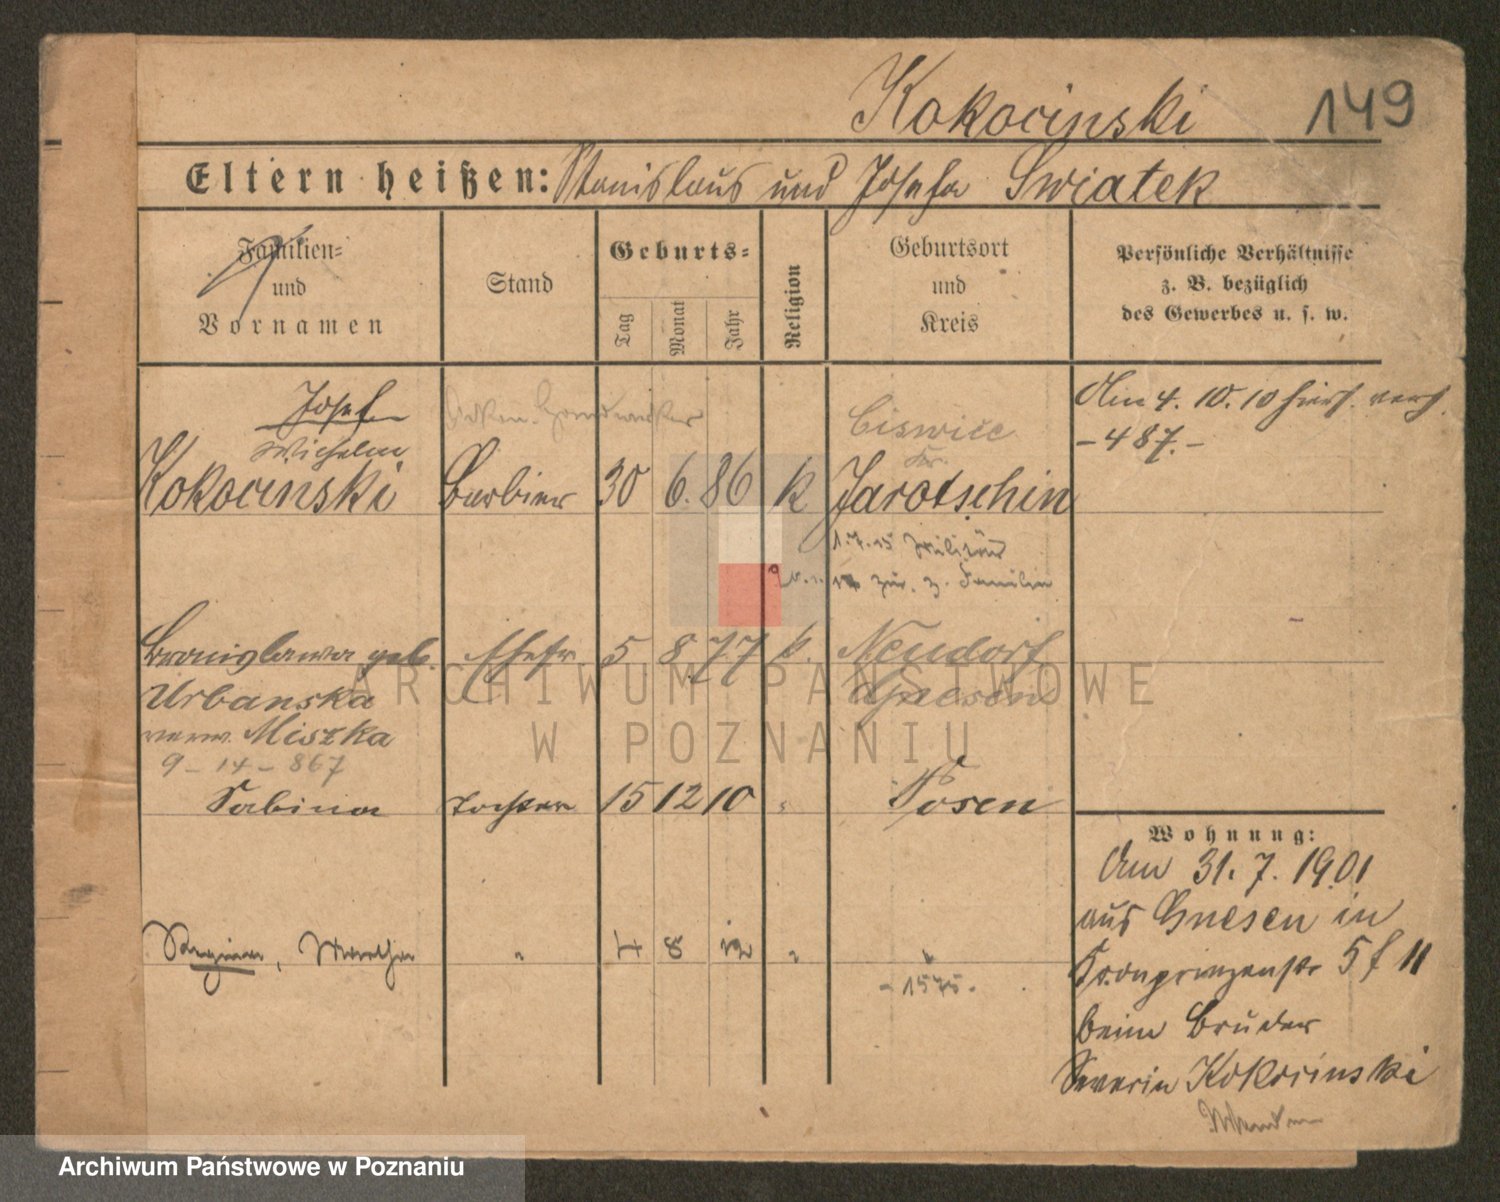 Kokocinski 149
Eltern heißen: Stanislaus und Josefa Swiatek
Familien=
und
Vornamen
Stand
Geburts=
Tag Monat Jahr
Religion
Geburtsort
und
Kreis
Persönliche Verhältnisse
z. B. bezüglich
des Gewerbes u. s. w.
Josef
Wilhelm
Kokocinski Barbier 30 6. 86 k Jarotschin
Ciswice
Kr.
Am 4. 10. 10 hier verh.
- 487. -
1. 7. 15 Militär
zur. z. Familie
Bronislawa geb. Ehefr 5 8 77 k. Neudorf
Urbanska Gnesen
verw. Miszka
9 - 14 - 867
Sabina Tochter 15 12 10 " Posen
Wohnung:
Am 31. 7. 1901
aus Gnesen in
Kronprinzenstr 5 f II
beim Bruder
Severin Kokocinski
Regina, Martha " 4 8 12 " "
- 1575. -
ARCHIWUM PAŃSTWOWE
W POZNANIU
Archiwum Państwowe w Poznaniu